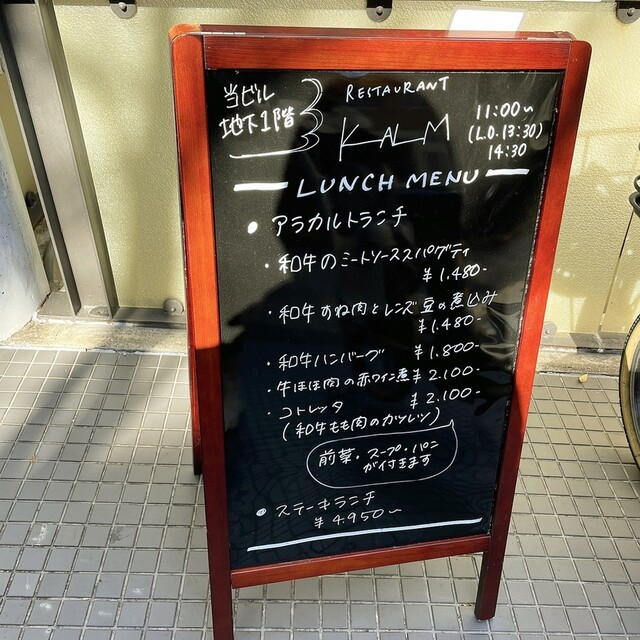 当ビル
地下1階
RESTAURANT
KALM
11:00〜
(L.O.13:30)
14:30
LUNCH MENU
● アラカルトランチ
・和牛のミートソーススパゲティ
¥1.480-
・和牛すね肉とレンズ豆の煮込み
¥1.480-
・和牛ハンバーグ ¥1.800-
・牛ほほ肉の赤ワイン煮 ¥2.100-
・コトレッタ ¥2.100-
(和牛もも肉のカツレツ)
前菜・スープ・パン
が付きます
● ステーキランチ
¥4.950〜